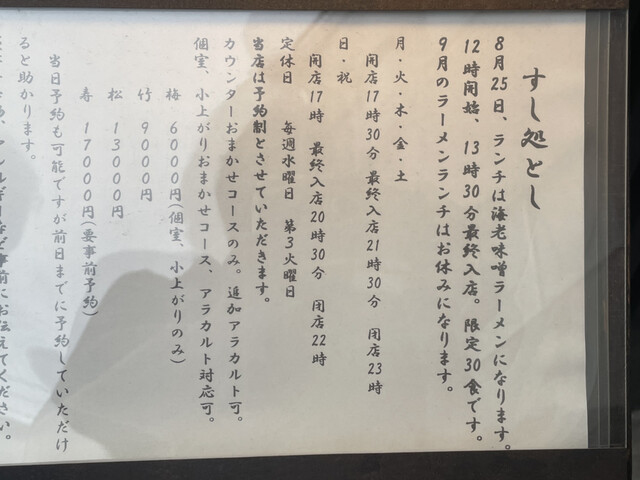 すし処とし
8月25日、ランチは海老味噌ラーメンになります。
12時開始、13時30分最終入店。限定30食です。
9月のラーメンランチはお休みになります。
月・火・木・金・土
開店17時30分 最終入店21時30分 閉店23時
日・祝
開店17時 最終入店20時30分 閉店22時
定休日 毎週水曜日 第3火曜日
当店は予約制とさせていただきます。
カウンターおまかせコースのみ。追加アラカルト可。
個室、小上がりおまかせコース、アラカルト対応可。
梅 6000円(個室、小上がりのみ)
竹 9000円
松 13000円
寿 17000円(要事前予約)
当日予約も可能ですが前日までに予約していただけ
ると助かります。
アレルギーなど事前にお伝えください。